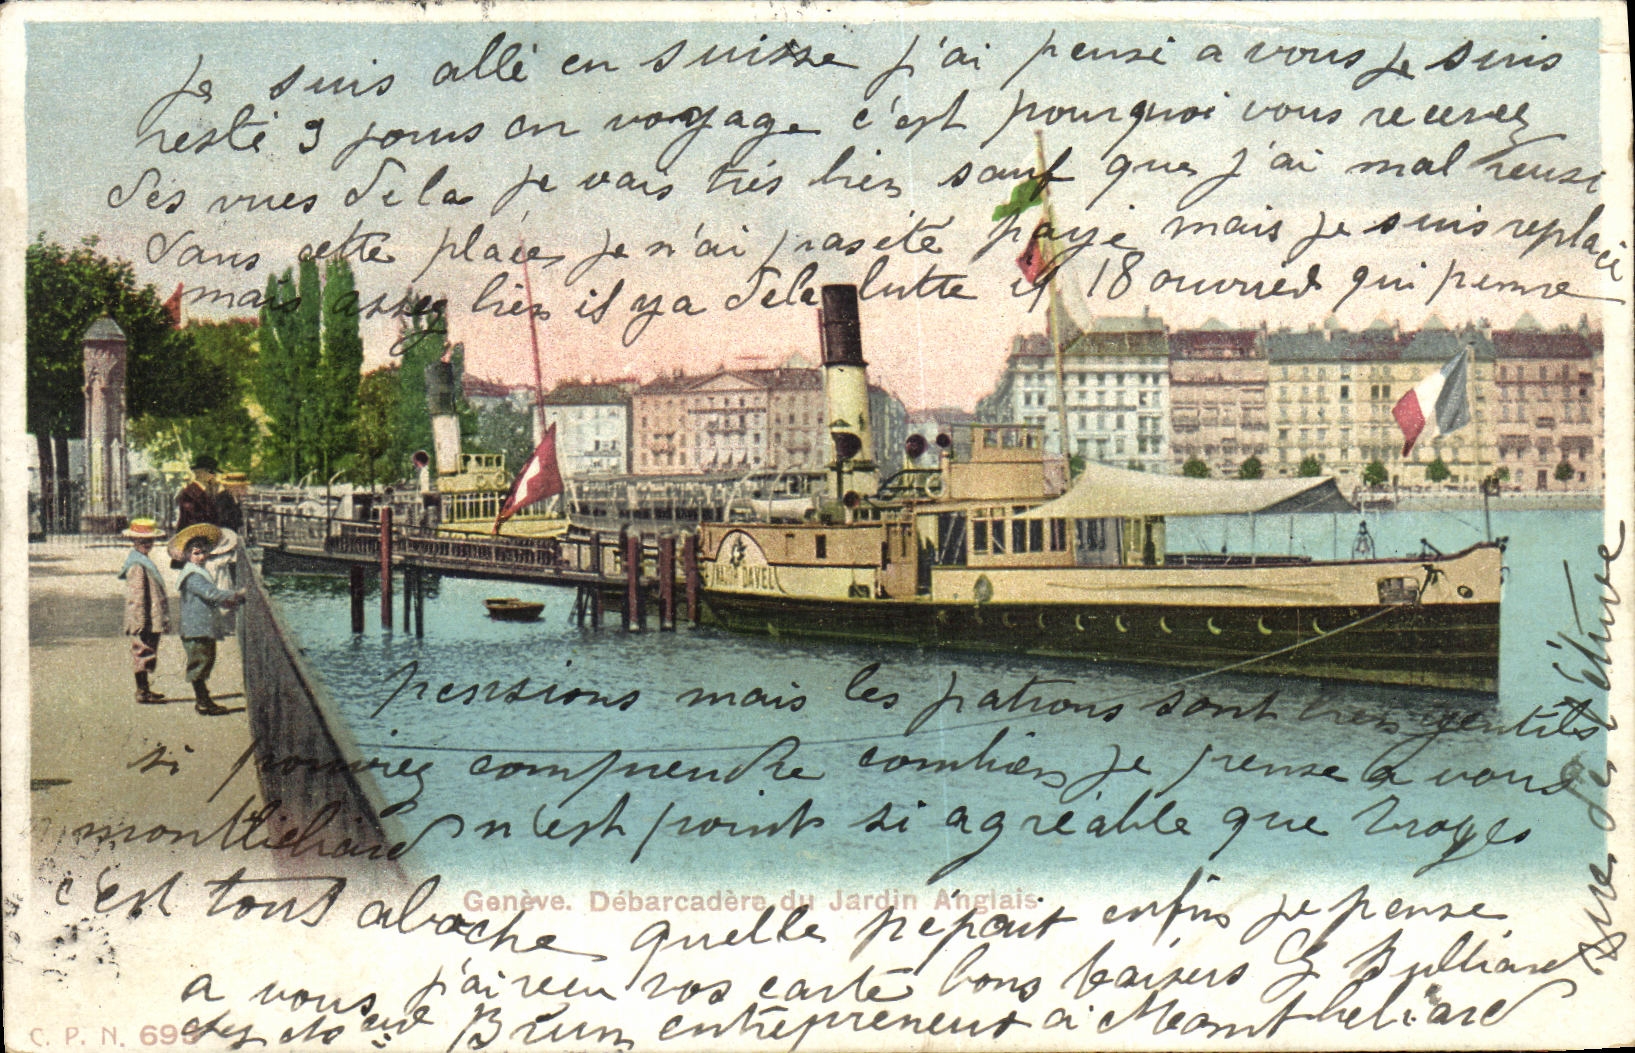 Je suis allé en Suisse j'ai pensé a vous je suis
resté 3 jours en voyage c'est pourquoi vous recevez
des vues de la je vais très bien sauf que j'ai mal reussi
dans cette place je n'ai pas eté payé mais je suis replacé
mais assez bien il y a de la lutte 18 ouvries qui prenne
pensions mais les patrons sont bien gentils
si pouviez comprendre combien je pense a vous
montbeliard n'est point si agréable que Troyes
c'est tout aboche quelle pepait enfin je pense
a vous j'ai recu vos carte bons baisers G Bulliard
chez Brun entrepreneur a Montbeliard
Rue de l'étuve
NATH DAVEL
Genève. Débarcadère du Jardin Anglais
C. P. N. 699